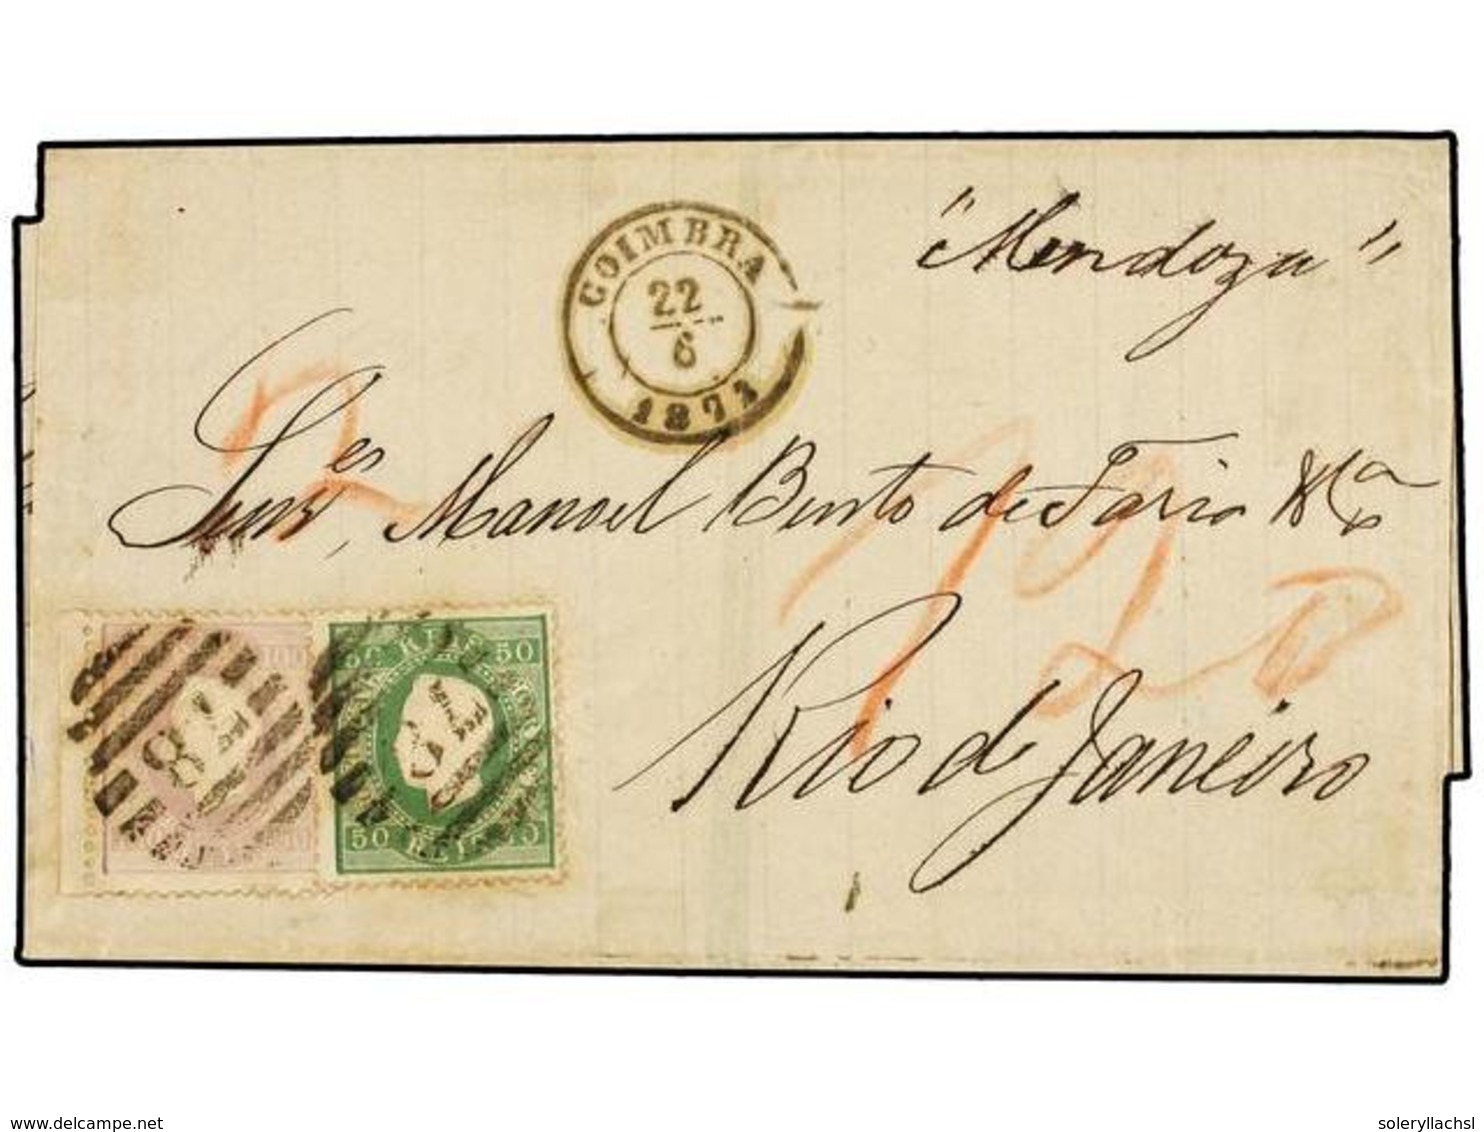 "Mendoza"
COIMBRA
22
6
1871
Snres, Manoel Bento de Faria & Ca
Rio de Janeiro
50 REIS 50
50 REIS 50
delcampe.net
soleryllachsl